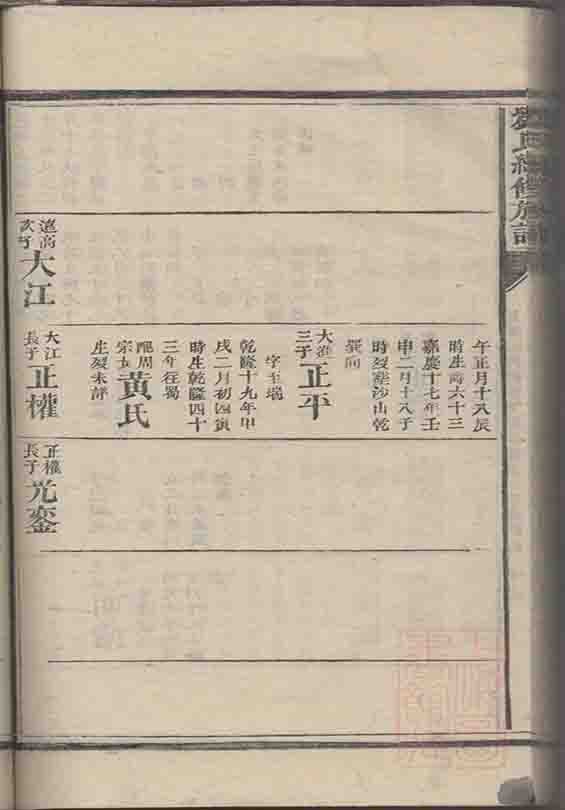 氏修族譜
遠高
次子
大江
午正月十八辰
時生壽六十三
嘉慶十七年壬
申二月十八子
時歿葬沙山乾
巽向
大
三子
正平
字至瑞
乾隆十九年甲
戌二月初四寅
時生乾隆四十
三年徃蜀
配周
宗女
黃氏
生歿未詳
大江
長子
正權
正權
長子
光鑾